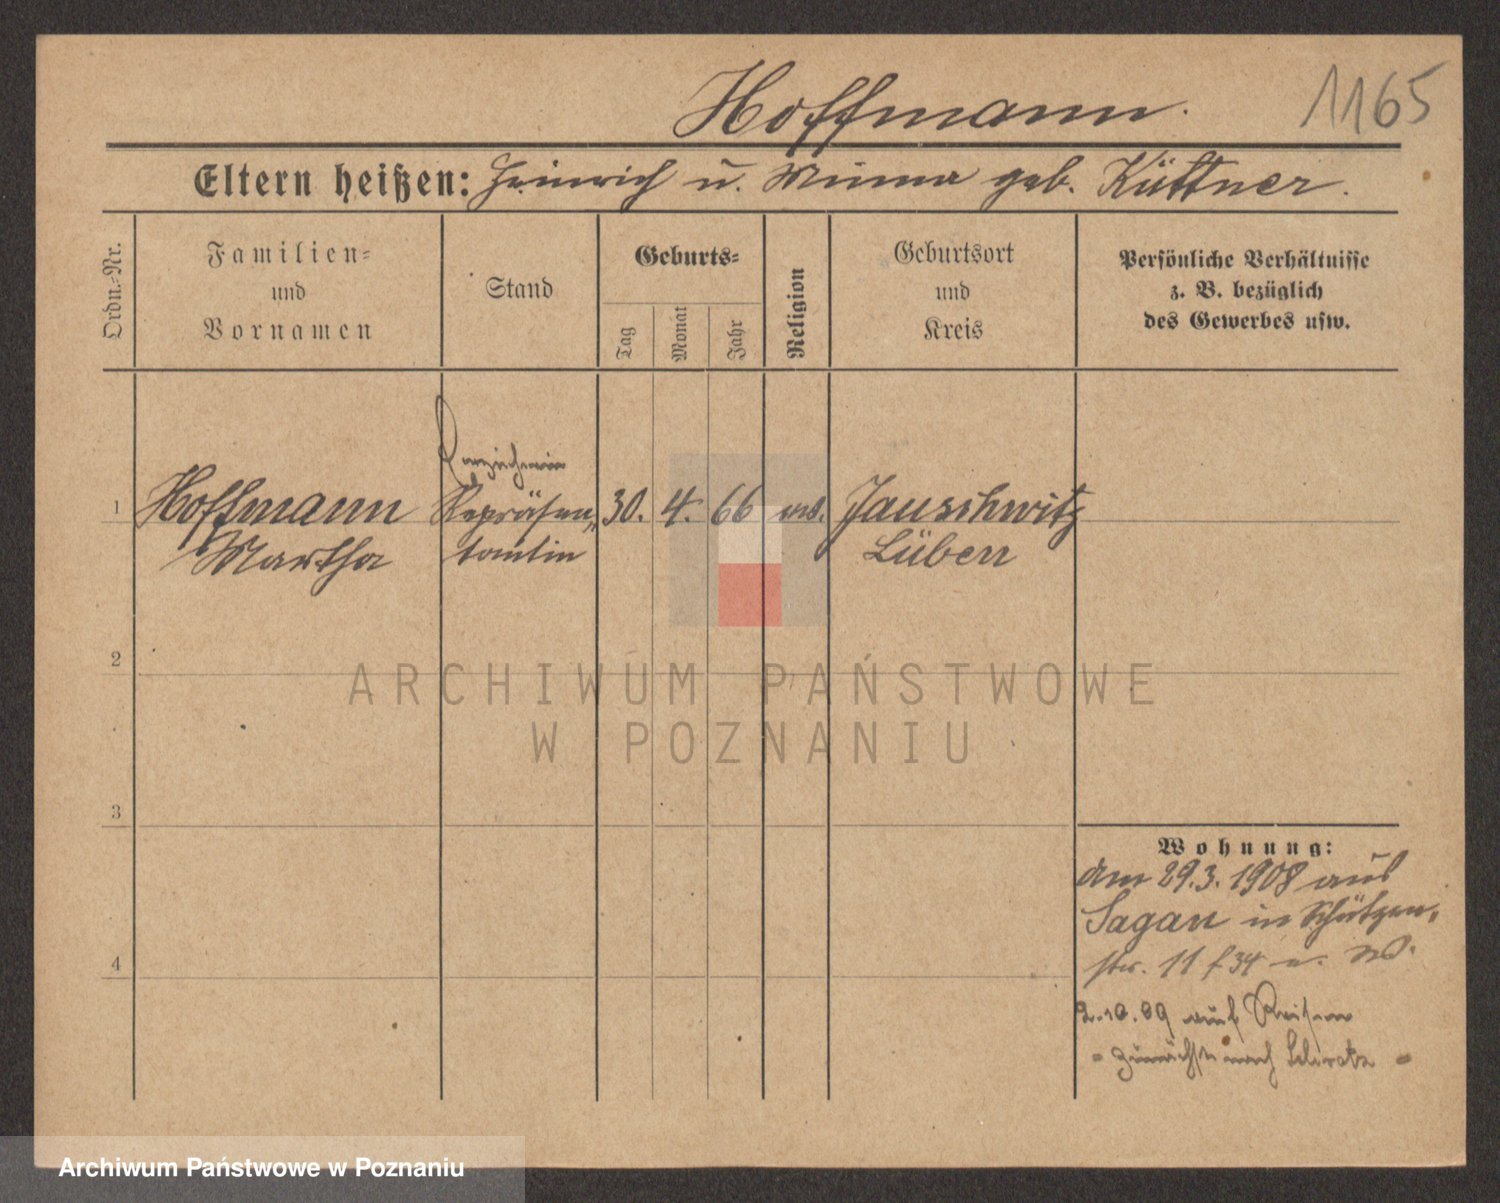 Hoffmann.
1165
Eltern heißen: Heinrich u. Minna geb. Küttner.
Ordn.-Nr.
Familien-
und
Vornamen
Stand
Geburts-
Tag
Monat
Jahr
Religion
Geburtsort
und
Kreis
Persönliche Verhältnisse
z. B. bezüglich
des Gewerbes usw.
Erzieherin
1 Hoffmann Repräsen„ 30. 4. 66 Jauschwitz
Martha tantin Lüben
2
ARCHIWUM PAŃSTWOWE
W POZNANIU
3
Wohnung:
Am 29.3.1908 aus
Sagan in Schützen„
str. 11
4
2.10.09 auf Reisen
- zunächst nach -
Archiwum Państwowe w Poznaniu